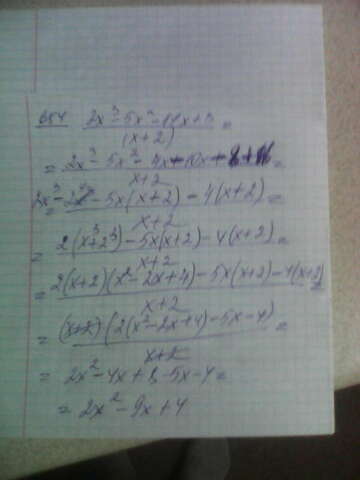 2x³-5x²-14x+8
(x+2) =
= 2x³-5x²-4x-10x+
x+2 =
-5x(x+2)-4(x+2) =
x+2
= 2(x³+2³)-5x(x+2)-4(x+2) =
x+2
= 2(x+2)(x²-2x+4)-5x(x+2)-4(x+2) =
x+2
= (x+2)(2(x²-2x+4)-5x-4) =
x+2
= 2x²-4x+8-5x-4 =
= 2x²-9x+4